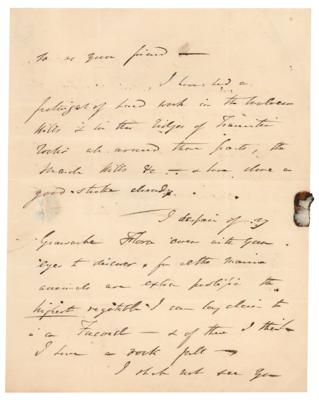 to a good friend —
I have had a
fortnight of hard work in the Malvern
Hills & in the ridges of Transition
Rocks all around these parts, the
Hills &c — & have done a
good stroke already.
I despair of my
Grauwacke Flora even with your
eyes to discover, for altho the marine
animals are extra prolific the
highest vegetable I can lay claim to
is a Fucoid — & of these I think
I have a rock full —
I shall not see you